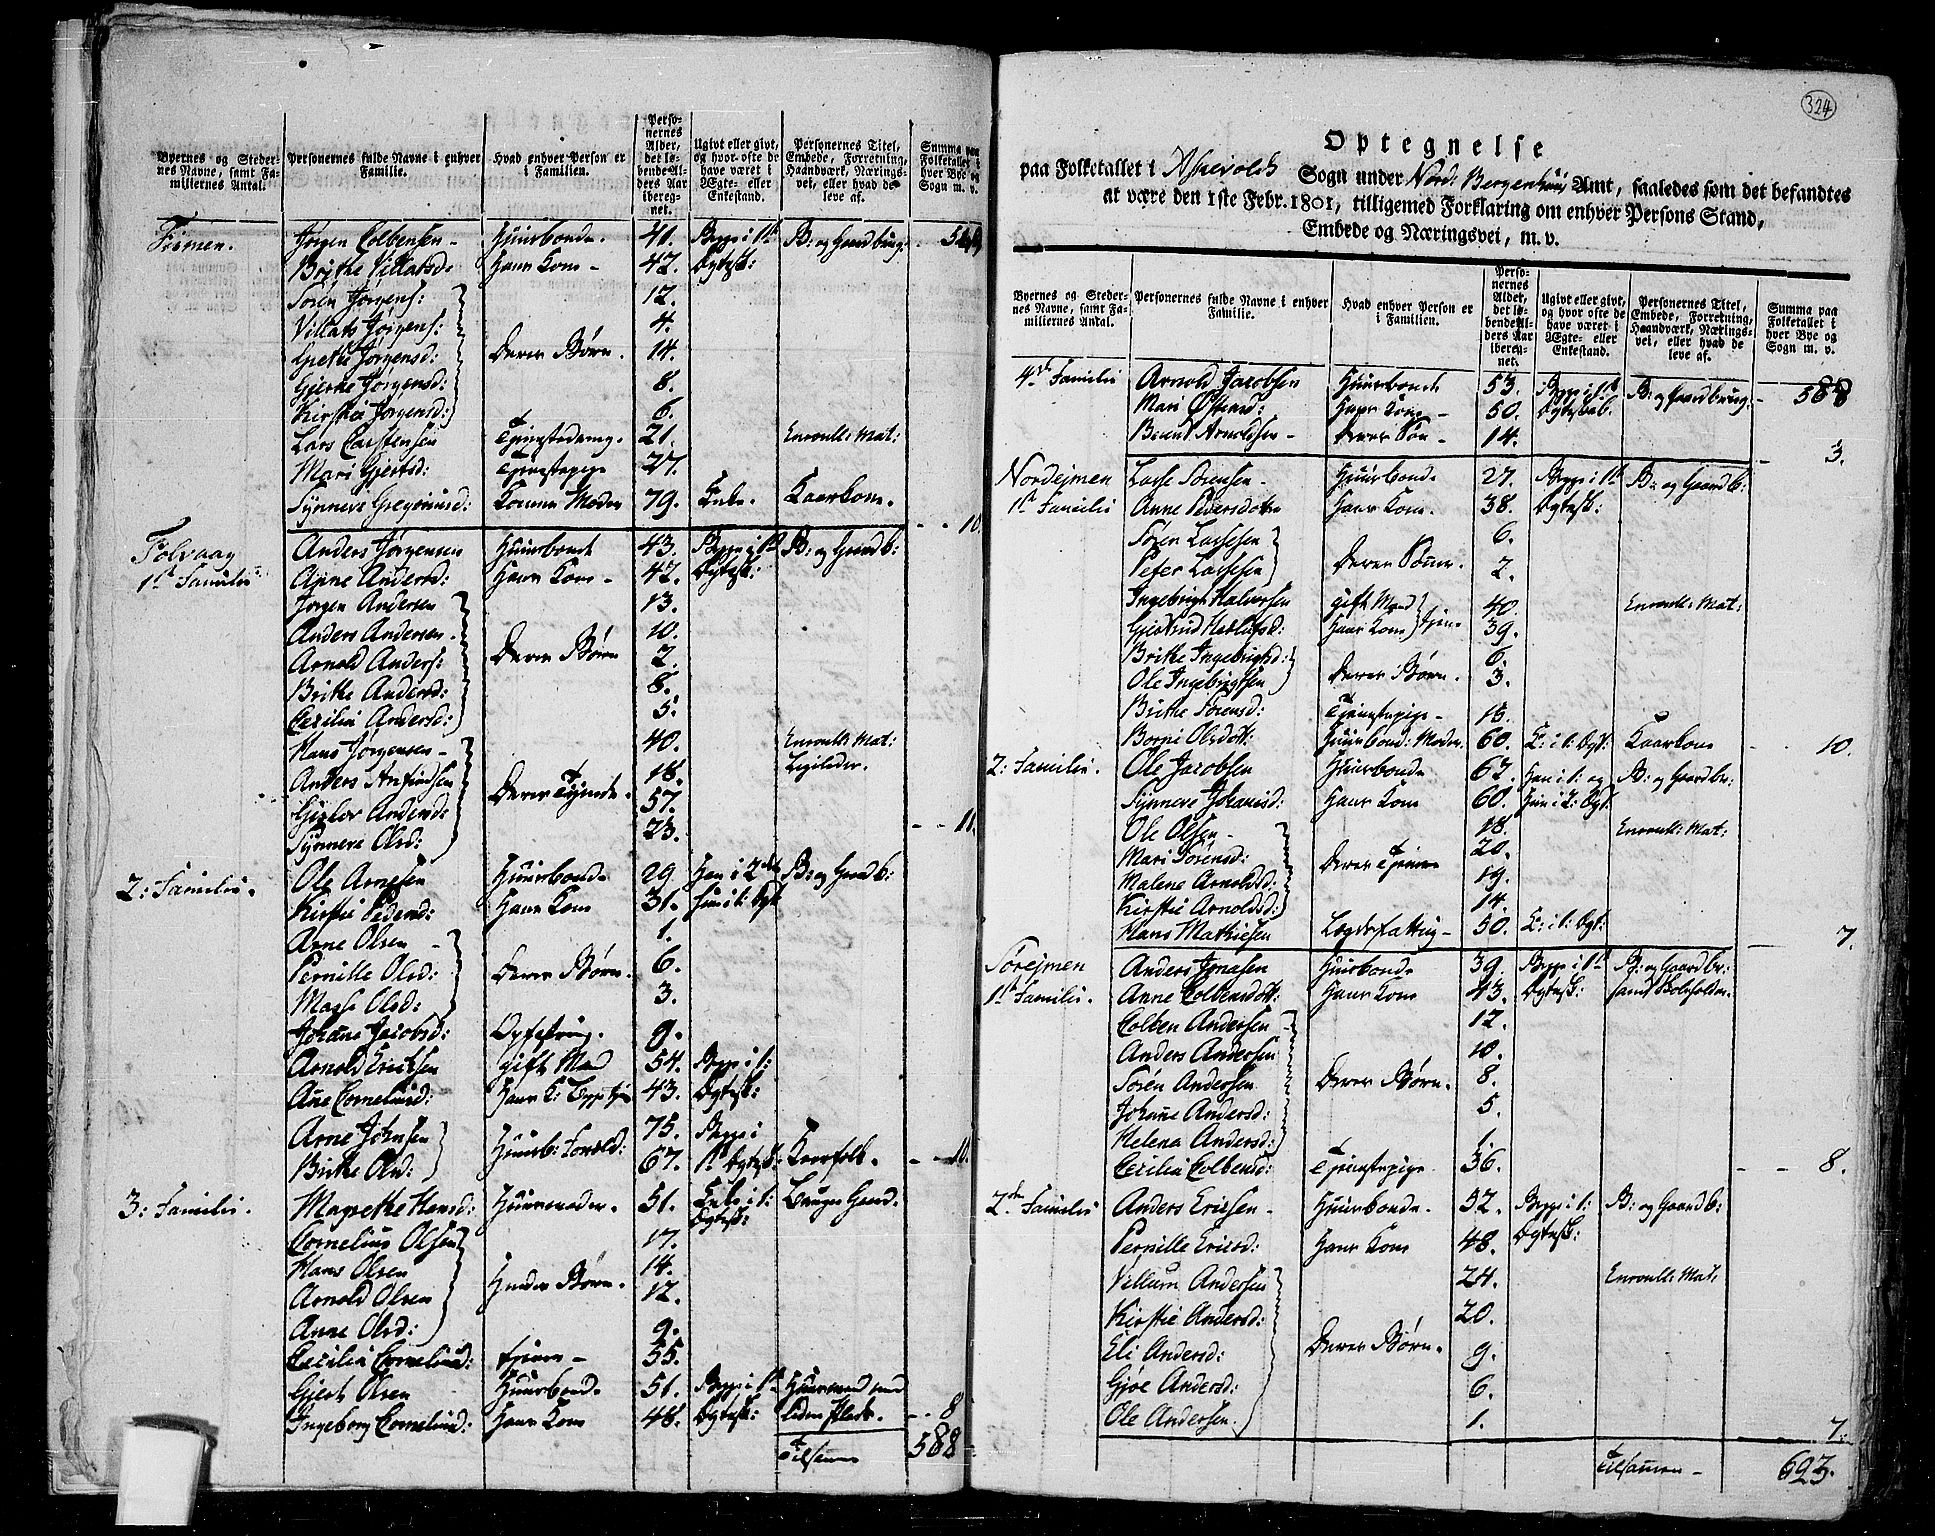 Byernes og Steder-
nes Navne, samt Fa-
miliernes Antal.
Personernes fulde Navne i enhver
Familie.
Hvad enhver Person er
i Familien.
Perso-
nernes
Alder,
det le-
bende Al-
ders Aar
iberegn-
net.
Ugivt eller givt,
og hvor ofte de
have været i
Ægte- eller
Enkestand.
Personernes Titel,
Embede, Forretning,
Haandværk, Nærings-
vei, eller hvad de
leve af.
Summa paa
Folketallet i
hver Bye og
Sogn m. v.
Jørgen Colbensen - Huusbonde. 41. Begge i 1ste B: og Gaardbrug:
Brithe Villatsd: Hans Kone - 42. Ægtesk:
Søren Jørgens: 12.
Villats Jørgens: 4.
Grethe Jørgensd: Deres Børn. 14.
Gjerthe Jørgensd: 8.
Kirstie Jørgensd: 6.
Lars Carstensen Tjenestedreng. 21. Enroull: Mat:
Mari Gjertsd: Tjenestepige 27.
Synneve Gregoriusd: Konens Moder 79. Enke. Kaarkone. 10.
Tolvaag Anders Jørgensen Huusbonde 43. Begge i 1ste B: og Gaardb:
1ste Familie Anne Andersd: Hans Kone - 42. Ægtesk:
Jørgen Andersen 13.
Anders Andersen. 10.
Arnold Anders: Deres Børn 2.
Brithe Andersd: 8.
Cecilia Andersd: 5.
Hans Jørgensen - 40. Enroull: Mat:
Anders Anfindsen Deres Tjeneste. 18. Ligeledes.
Andersd: 57.
Synneve Olsd: 23. 11.
2: Familie. Ole Arnesen Huusbonde 29 Han i 2det B: og Gaardb:
Kirstie Pedersd: Hans Kone 31. hun i 1: Ægt
Arne Olsen - 1.
Pernille Olsd: Deres Børn. 6.
Masse Olsd: 3.
Johane Jacobsd: Opfostring. 9.
Arnold Ericksen gift Mand 54. Begge i 1:
Ane Corneliusd: Hans K: 43. Ægtesk:
Arne Johnsen 75. Begge i
Brithe Olsd: Huusb: Foreld: 67. 1ste Ægtesk: Kaarfolk. 10.
3: Familie. Magrethe Hansd: Huusmoder. 51. Enke i 1: Ægtesk: Bruger Gaard.
Cornelius Olsen 17.
Hans Olsen Hendes Børn. 14.
Arnold Olsen 12.
Anne Olsd: 9.
Cecilia Corneliusd: tjener - 55.
Gjert Olsen Huusbonde 51. Begge i 1ste Huusmand med
Ingeborg Corneliusd: Hans Kone 48. Ægtesk: liden Plads. 8
Tilsamen 588
324
Optegnelse
paa Folketallet i Askevolds Sogn under Nord: Bergenhuus Amt, saaledes som det befandtes
at være den 1ste Febr. 1801, tilligemed Forklaring om enhver Persons Stand,
Embede og Næringsvei, m. v.
Byernes og Steder-
nes Navne, samt Fa-
miliernes Antal.
Personernes fulde Navne i enhver
Familie.
Hvad enhver Person er
i Familien.
Perso-
nernes
Alder,
det le-
bende Al-
ders Aar
iberegn-
net.
Ugivt eller givt,
og hvor ofte de
have været i
Ægte- eller
Enkestand.
Personernes Titel,
Embede, Forretning,
Haandværk, Nærings-
vei, eller hvad de
leve af.
Summa paa
Folketallet i
hver Bye og
Sogn m. v.
4de Familie Arnold Jacobsen Huusbonde 53. Begge i 1ste B: og Gaardbrug: 588
Mari Hans Kone - 50. Ægteskab.
Bernt Arnoldsen - deres Søn - 14. 3.
Nordejmen Lasse Sørensen - Huusbonde 27. Begge i 1ste B: og Gaardb:
1ste Familie Anne Pedersdotter Hans Kone. 38. Ægtesk:
Søren Lassesen 6.
Peter Lassesen Deres Sønner. 2.
Ingebrigt Halvorsen gift Mand 40. Enroull: Mat:
Giertrud Hans Kone tjener 39.
Brithe Ingebrigtsd: 6.
Ole Ingebrigtsen Deres Børn. 3.
Brithe Sørensd: Tjenestepige - 15.
Borni Olsdott: Huusbond: Moder. 60. E: i 1: Ægt: Kaarkone 10.
2: Familie. Ole Jacobsen Huusbonde 67. Han i 1: og B: og Gaardbr:
Synneve Johanisd: Hans Kone 60. Hun i 2: Ægt:
Ole Olsen - 18. Enroull: Mat:
Mari Sørensd: Deres Tjenere 20.
Malene Arnoldsd: 19.
Kirstie Arnoldsd: 14.
Hans Mathiesen Lægdsfatting - 50. E: i 1: Ægt: 7.
Sørejmen Anders Jonasen Huusbonde 39. Begge i 1ste B: og Gaardbr:
1ste Familie. Anne Colbensdott: Hans Kone 43. Ægtesk: samt
Colben Andersen 12.
Anders Andersen 10.
Søren Andersen Deres Børn. 8.
Johane Andersd: 5.
Helena Andersd: 1.
Cecilia Colbensd: Tjenestepige 36. 8.
2den Familie Anders Ericsen - Huusbonde. 52. Begge i 1: B: og Gaardb:
Pernille Ericsd: Hans Kone 48. Ægtesk:
Villum Andersen 24. Enroull: Mat:
Kirstie Andersd: 20.
Eli Andersd: Deres Børn. 9.
Gjøe Andersd: 6.
Ole Andersen. 1. 7.
Tilsamen - 623.